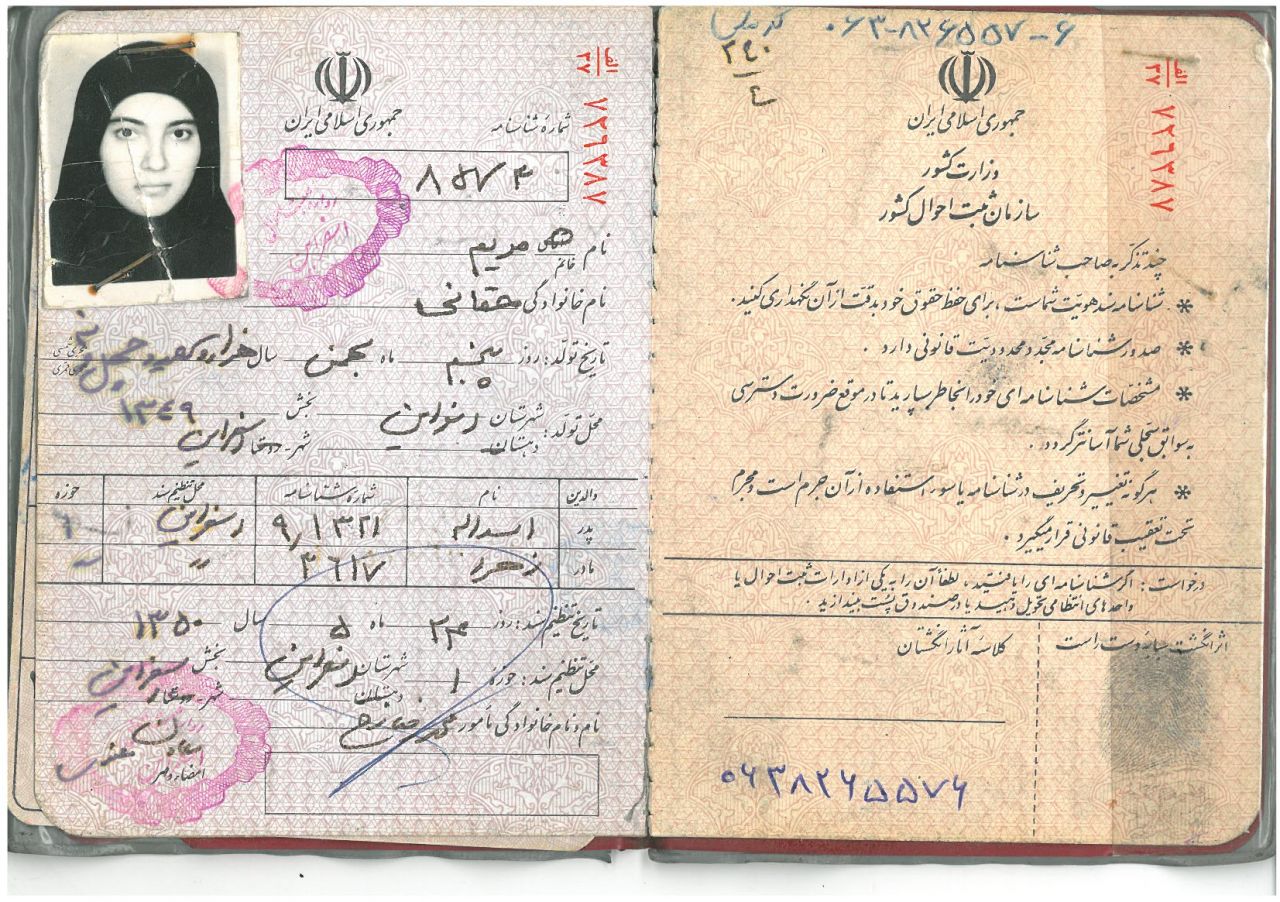 کد ملی ۰۶۳-۸۲۶۵۵۷-۶
۲۴۰
۴
الف
۲۷
۷۲۶۳۸۷
جمهوری اسلامی ایران
وزارت کشور
سازمان ثبت احوال کشور
چند تذکر به صاحب شناسنامه
* شناسنامه سند هویت شماست ، برای حفظ حقوق خود بدقت از آن نگهداری کنید .
* صدور شناسنامه مجدد محدودیت قانونی دارد .
* مشخصات شناسنامه ای خود را بخاطر بسپارید تا در موقع ضرورت دسترسی
به سوابق سجلی شما آسانتر گردد .
* هرگونه تغییر و تحریف در شناسنامه یا سوء استفاده از آن جرم است و مجرم
تحت تعقیب قانونی قرار میگیرد .
درخواست : اگر شناسنامه ای را یافتید ، لطفاً آن را به یکی از ادارات ثبت احوال یا
واحدهای انتظامی تحویل دهید یا در صندوق پست بیندازید .
اثر انگشت سبابه دست راست
کلاسه آثار انگشتان
۰۶۳۸۲۶۵۵۷۶
الف
۲۷
۷۲۶۳۸۷
جمهوری اسلامی ایران
شماره شناسنامه
۸۵۷۳
اسفراین
نام خانم مریم
نام خانوادگی حقانی
تاریخ تولد : روز پنجم ماه بهمن سال هزار و سیصد و چهل و نه
۱۳۴۹
محل تولد : شهرستان اسفراین بخش
دهستان شهر - اسفراین
والدین نام شماره شناسنامه محل تنظیم سند حوزه
پدر اسداله ۹/۱۳۲۱ اسفراین ۱
مادر زهرا ۳۶۱۷ " "
تاریخ تنظیم سند : روز ۲۳ ماه ۵ سال ۱۳۵۰
محل تنظیم سند : حوزه ۱ شهرستان اسفراین بخش
دهستان شهر - اسفراین
نام و نام خانوادگی مأمور
امضاء و مهر